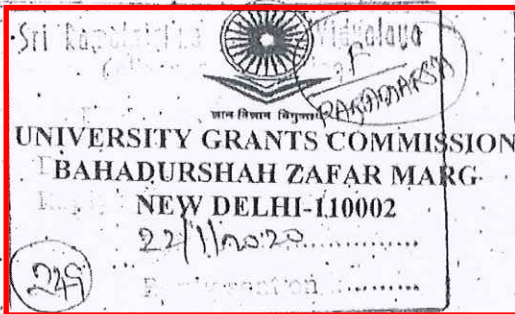 Sri Ramakrishna Vidyalaya
F
PARAMARSH
ज्ञान विज्ञान विमुक्तये
UNIVERSITY GRANTS COMMISSION
BAHADURSHAH ZAFAR MARG
NEW DELHI-110002
22/1/2020
249